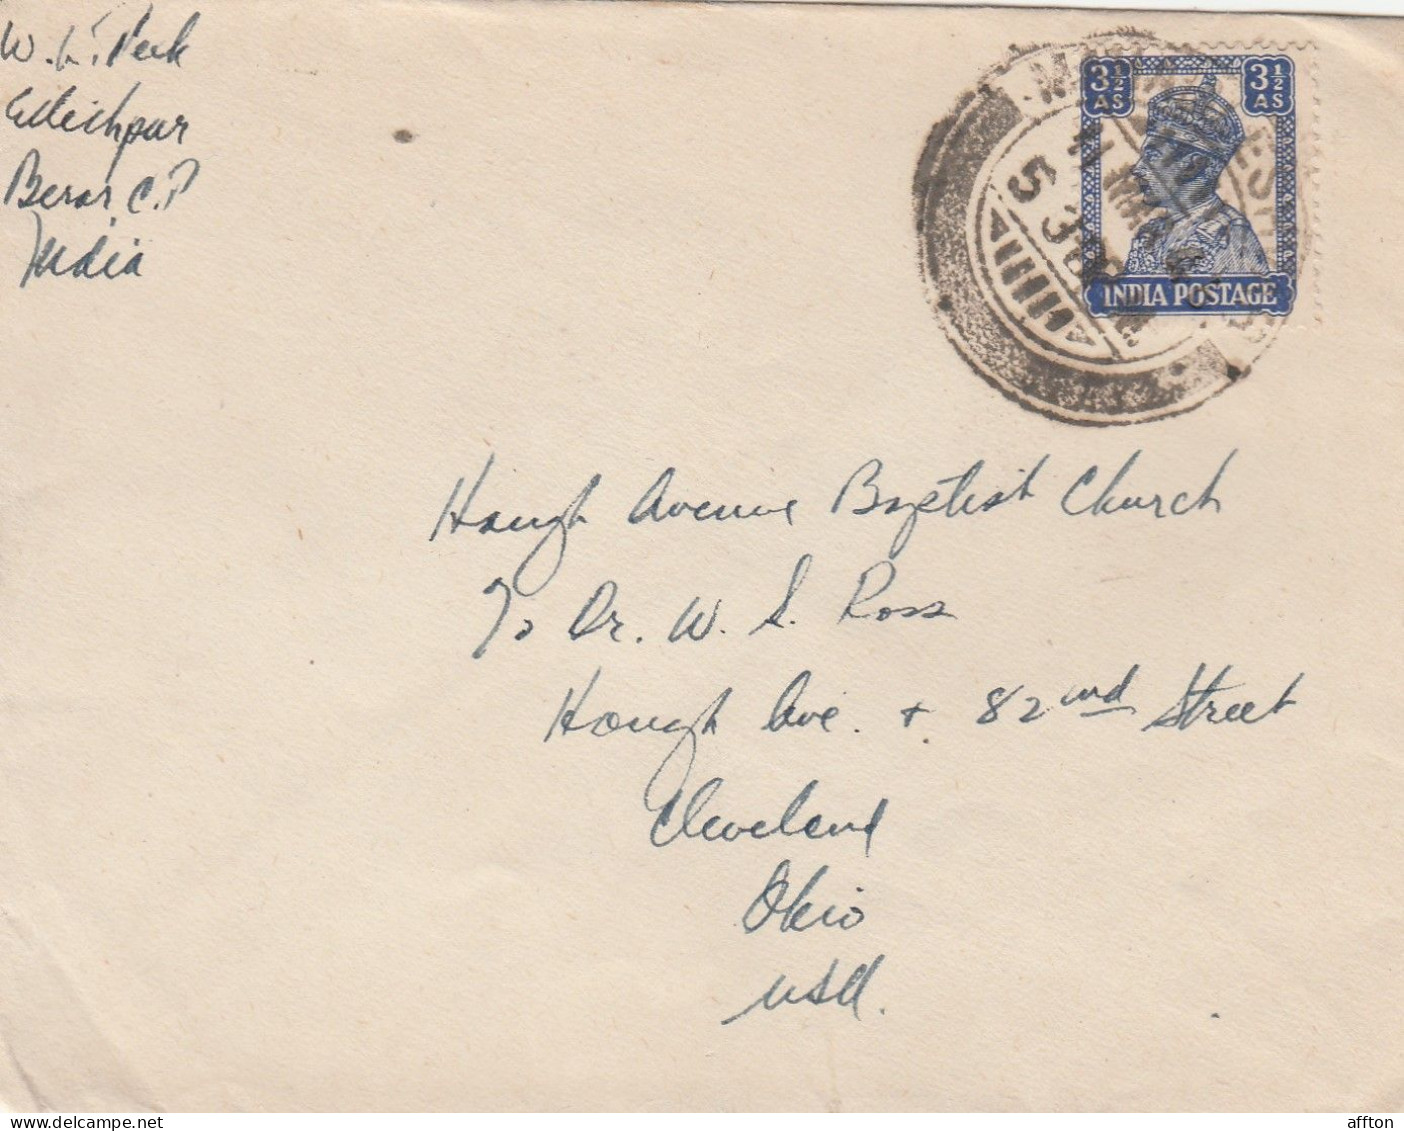 W. L. Peck
Ellichpur
Berar, C.P
India
3½ AS
3½ AS
INDIA POSTAGE
5 30 PM
Hough Avenue Baptist Church
To Dr. W. S. Ross
Hough Ave. + 82nd Street
Cleveland
Ohio
USA.
affton